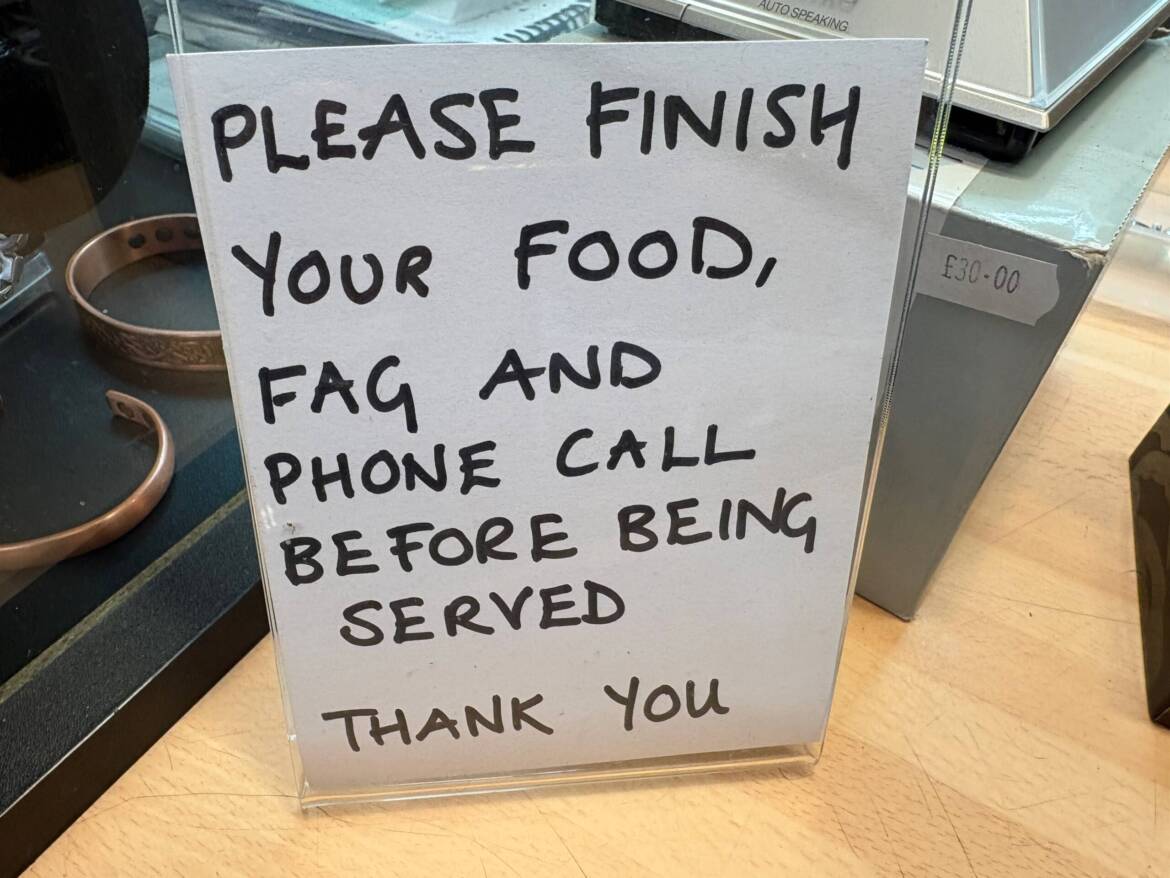 AUTO SPEAKING
PLEASE FINISH
YOUR FOOD,
FAG AND
PHONE CALL
BEFORE BEING
SERVED
THANK YOU
£30.00